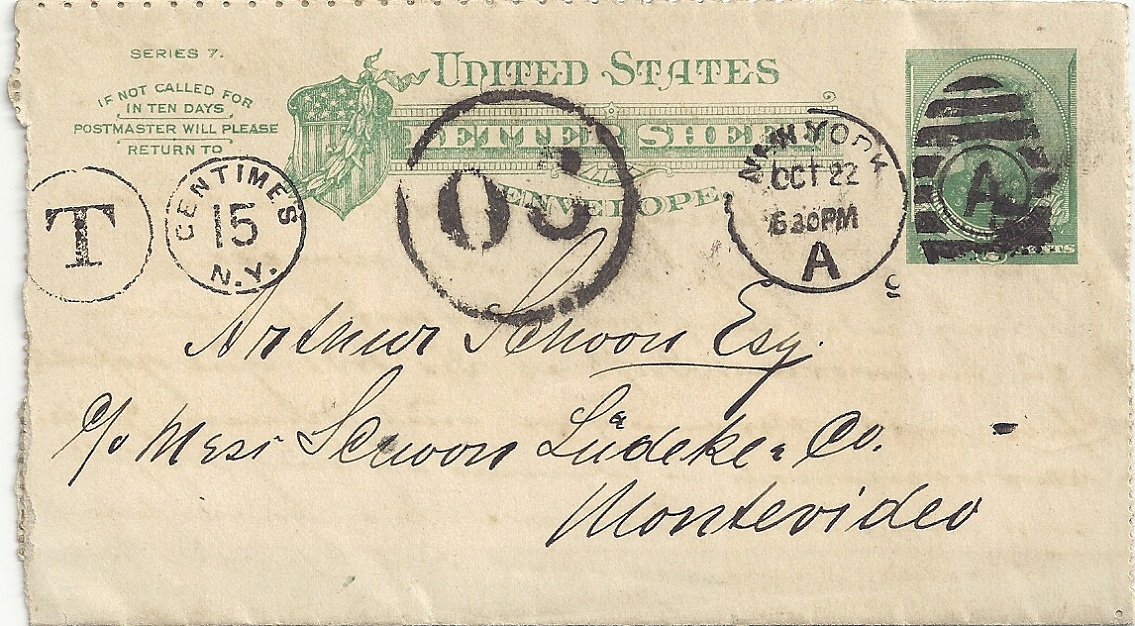 SERIES 7.
IF NOT CALLED FOR
IN TEN DAYS
POSTMASTER WILL PLEASE
RETURN TO
UNITED STATES
LETTER SHEET
ENVELOPE.
T
CENTIMES
15
N.Y.
NEW YORK
OCT 22
630PM
A
A
CENTS
Arthur Schoon Esq.
c/o Mess Schoon Lüdeke & Co.
Montevideo